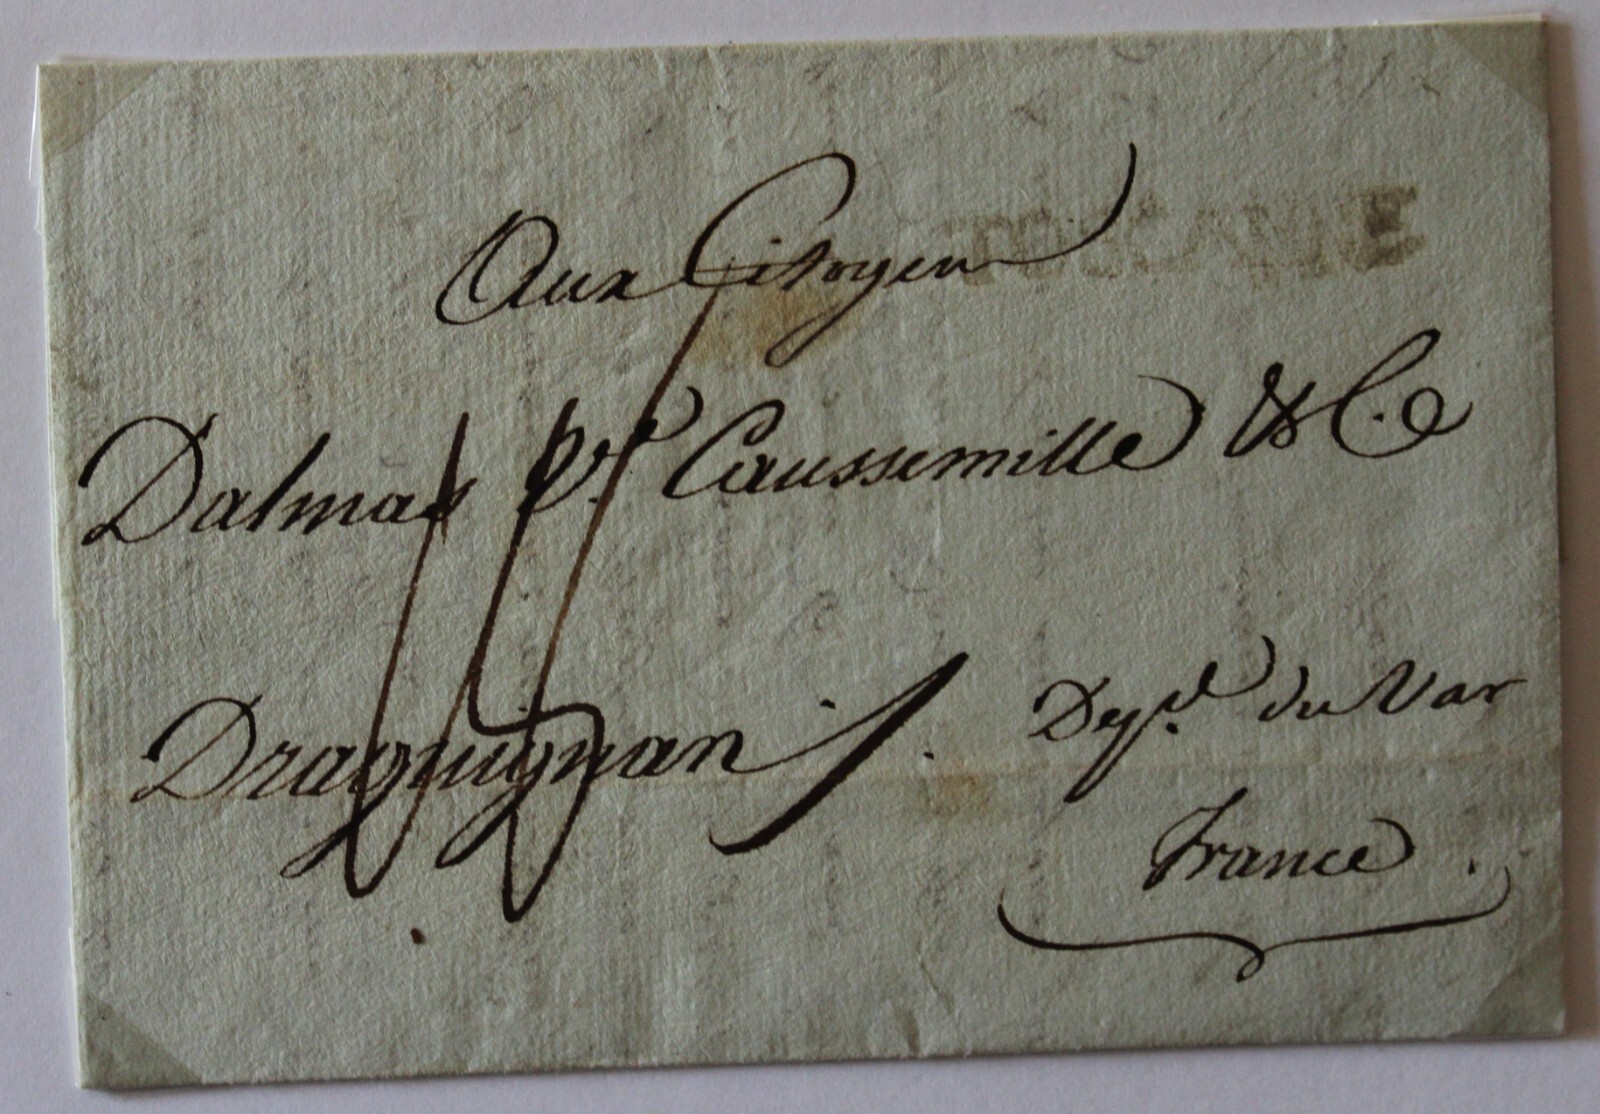 Aux Citoyen
Dalmas Vve Caussemille & Ce
Draguignan . Depl. du Var
France .